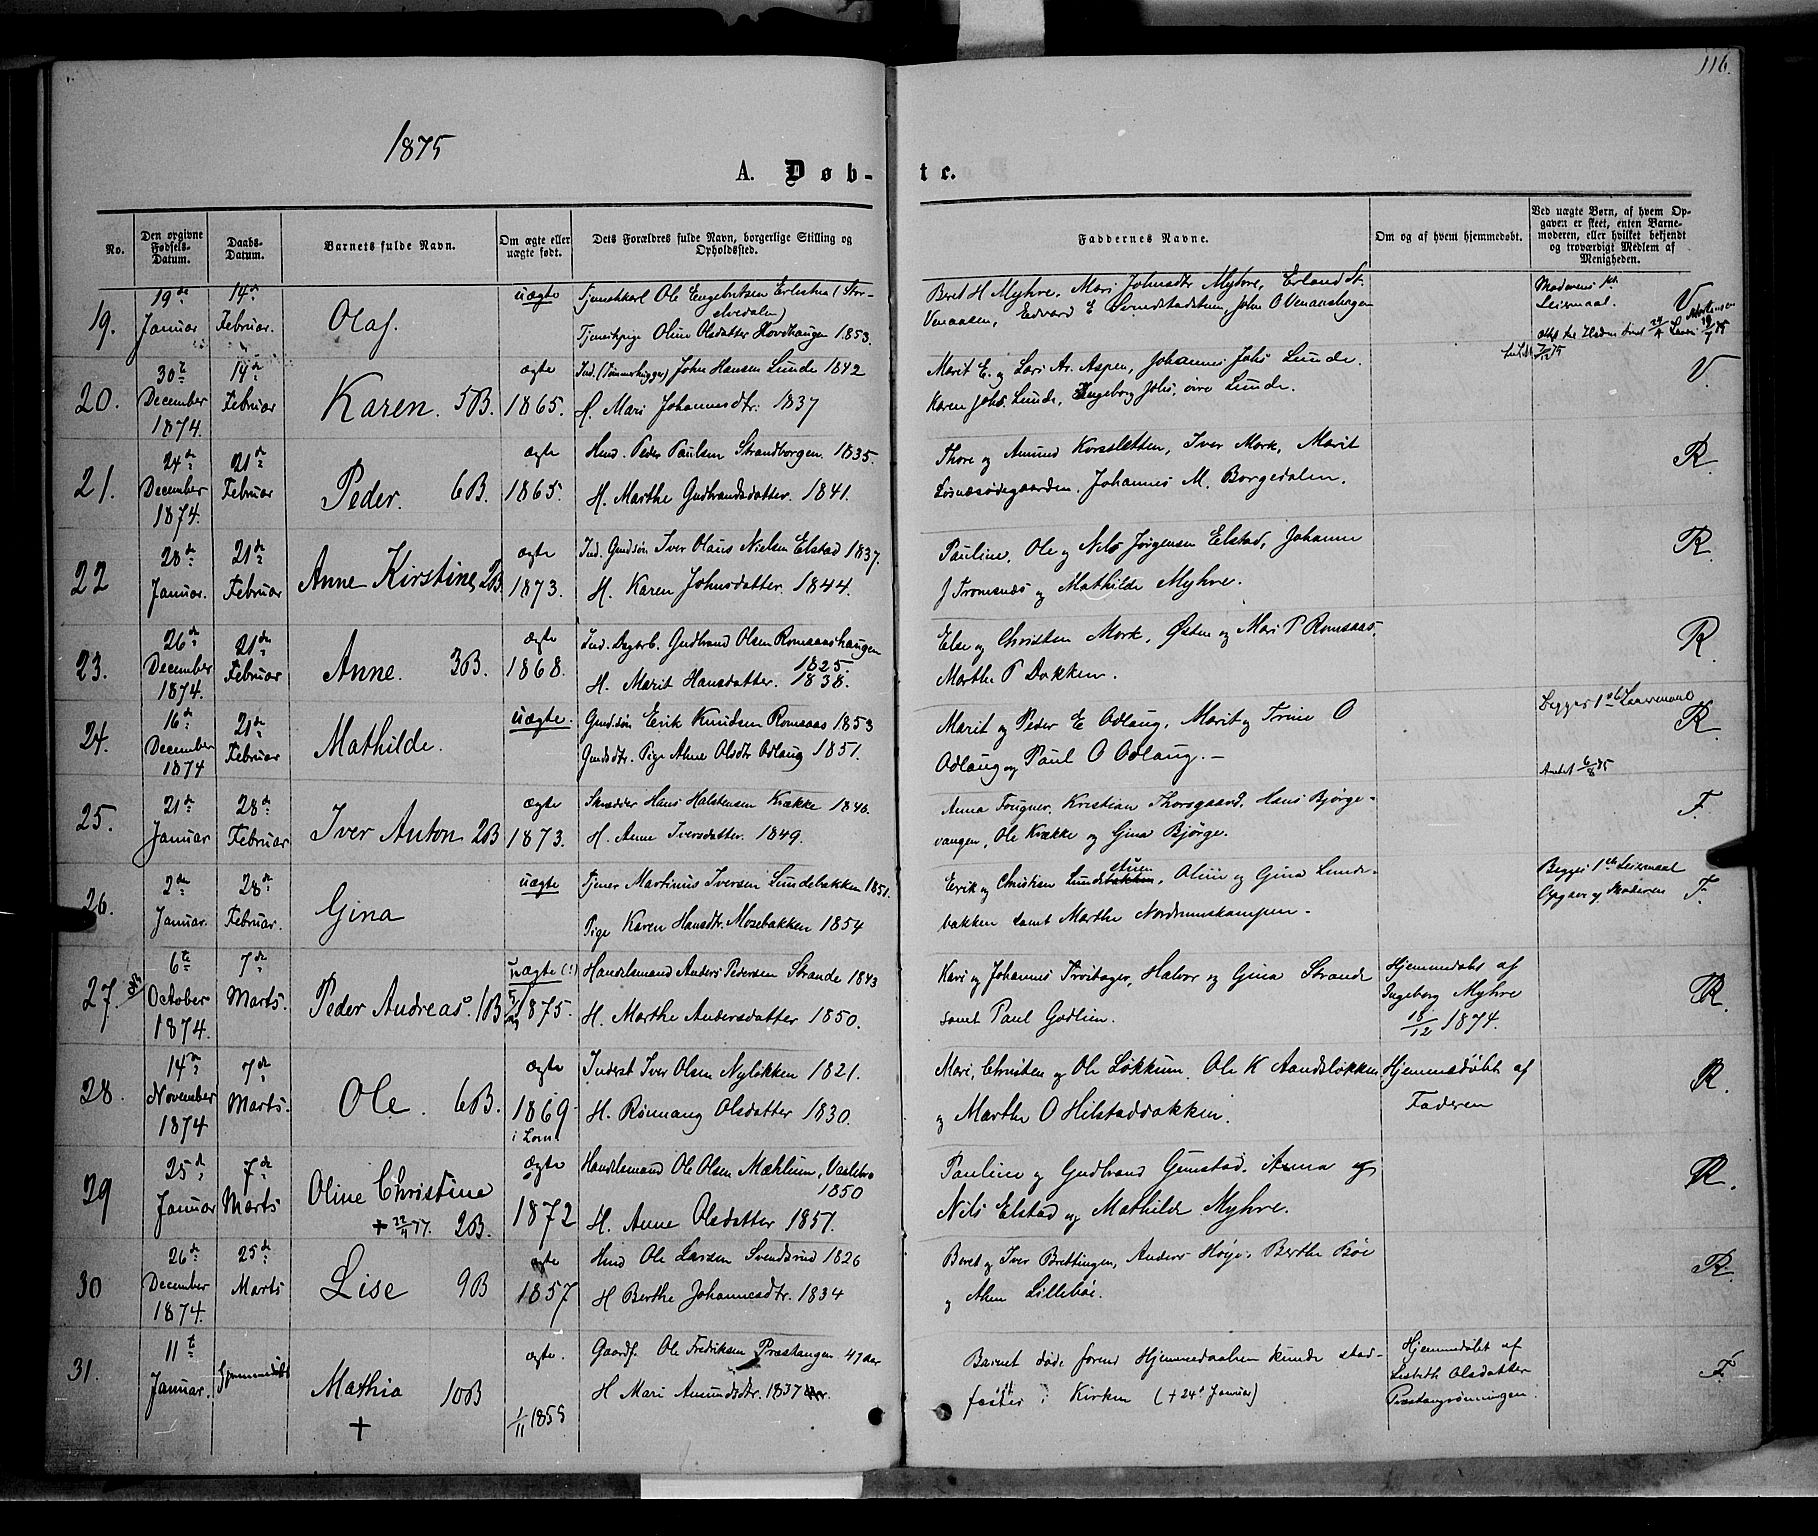 116.
1875
A. Døb-
te.
No.
Den opgivne Fødsels-Datum.
Daabs-Datum.
Barnets fulde Navn.
Om ægte eller uægte født.
Dets Forældres fulde Navn, borgerlige Stilling og Opholdssted.
Faddernes Navne.
Om og af hvem hjemmedøbt.
Ved uægte Børn, af hvem Opgaven er skeet, enten Barnemoderen, eller hvilket bekjendt og troværdigt Medlem af Menigheden.
19.
19de Januar
14de Februar.
Olaf.
uægte
Tjenestkarl Ole Engebritsen
Tjenestpige Oline Olsdatter Hovdhaugen 1853.
Beret H Myhre, Mari Johnsdtr Myhre, Erland St.
Venaasen, Edvard E, John O Venaashagen
Moderens
Leiermaal.
V
20.
30te December 1874.
14de Februar
Karen. 5B.
ægte 1865.
Ind. (Tømmerhugger) John Hansen Lunde 1842
H. Mari Johannesdtr. 1837
Marit E. og Lars Ar. Aspen, Johannes Johs Lunde.
Karen Johs. Lunde, Ingeborg Johs, øvre Lunde.
V.
21.
24de December 1874.
21de Februar
Peder. 6B.
ægte 1865.
Huus. Peder Paulsen Strandborgen. 1835.
H. Marthe Gudbrandsdatter. 1841.
Thore og Amund Korssletten, Iver Mork, Marit
Losnæsødegaarden. Johannes M. Borgedalen.
R.
22
28de Januar.
21de Februar
Anne Kirstine, 2B.
ægte 1873.
Ind. Gaardsøn Iver Olaus Nielsen Elstad 1837.
H. Karen Johnsdatter. 1844.
Pauline, Ole og Nils Jørgensen Elstad, Johanne
J Tromsnæs og Mathilde Myhre.
R
23.
26de December 1874.
21de Februar
Anne. 3B.
ægte 1868.
Ind. Gudbrand Olsen Romsaashaugen
1825.
H. Marit Hansdatter. 1838.
Else og Christen Mork, Østen og Mari P Romsaas,
Marthe P Dokken.
R.
24.
16de December 1874
21de Februar
Mathilde.
uægte.
Gaardsøn Erik Knudsen Romsaas 1853
Gaardsdtr. Pige Anne Olsdtr Odlaug 1851.
Marit og Peder E Odlaug, Marit og Trine O
Odlaug og Paul O Odlaug. –
Begges 1ste
R
25.
21de Januar.
28de Februar
Iver Anton 2B
ægte 1873.
Skrædder Hans Halstensen Krække 1840.
H. Anne Iversdatter. 1849.
Anna Fougner, Kristian Thorsgaard, Hans Bjørge-
vangen, Ole Krække og Gina Bjørge.
F.
26.
2de Januar.
28de Februar.
Gina
uægte
Tjener Martinus Iversen Lundebakken 1851.
Pige Karen Hansdtr. Mosebakken 1854
stuen
Erik og Christian Lundebakken, Oline og Gina Lunde-
bakken samt Marthe Nordrumskampen.
Begges 1ste Leiermaal
Opgave af Moderen
F.
27.
6te October 1874.
7de Marts.
Peder Andreas. 1B
uægte (!)
1875.
Handelsmand Anders Pedersen Strande 1843
H. Marthe Andersdatter 1850.
Kari og Johannes, Halvor og Gina Strande
samt Paul Godlien.
Hjemmedøbt af
Ingeborg Myhre
18/12 1874.
R.
28.
14de November 1874
7de Marts.
Ole. 6B.
ægte 1869
i Lom.
Inderst Iver Olsen Nyløkken 1821.
H. Rønnaug Olsdatter 1830.
Mari, Christen og Ole Løkkum, Ole K Aandsløkken
og Marthe O Hilstadbakken.
Hjemmedøbt af
Faderen
R.
29
25de Januar
7de Marts
Oline Christine
+ 22/4 77. 2B.
ægte 1872
Handelsmand Ole Olsen Mæhlum, Vaalebro
1850
H. Anne Olsdatter 1851.
Pauline og Gudbrand Gunstad, Anna og
Nils Elstad og Mathilde Myhre.
R.
30
26de December 1874.
25de Marts
Lise 9B
ægte 1857
Huus Ole Larsen Svendsrud 1826
H Berthe Johannesdtr. 1834
Beret og Iver Brettingen, Anders Høye, Berthe Bøe
og Lillebøe.
R.
31.
11te Januar.
Hjemmedøbt
Mathia 10B
+
ægte.
1/11 1855
Gaardf. Ole Fredriksen Præstangen 47 aar
H Mari Amundsdtr. 1837
Barnet døde førend Hjemmedaaben kunde stad-
fæstes i Kirken (+ 24de Januar)
Hjemmedøbt af
Lisbeth Olsdatter
Præstangrønningen.
F.